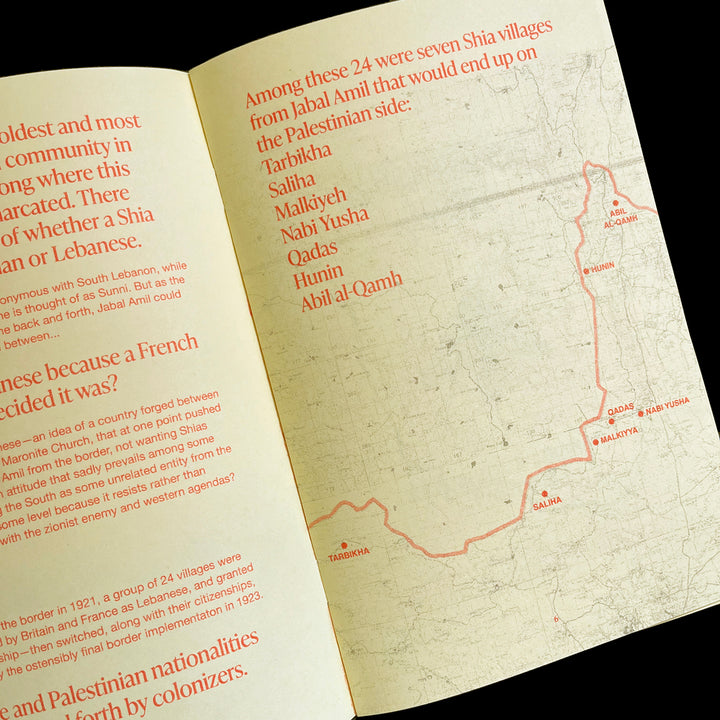 oldest and most
community in
ong where this
arcated. There
of whether a Shia
an or Lebanese.
onymous with South Lebanon, while
ne is thought of as Sunni. But as the
ne back and forth, Jabal Amil could
between...
nese because a French
ecided it was?
nese—an idea of a country forged between
Maronite Church, that at one point pushed
Amil from the border, not wanting Shias
n attitude that sadly prevails among some
g the South as some unrelated entity from the
some level because it resists rather than
with the zionist enemy and western agendas?
the border in 1921, a group of 24 villages were
d by Britain and France as Lebanese, and granted
ship—then switched, along with their citizenships,
y the ostensibly final border implementaton in 1923.
e and Palestinian nationalities
d forth by colonizers.
Among these 24 were seven Shia villages
from Jabal Amil that would end up on
the Palestinian side:
Tarbikha
Saliha
Malkiyeh
Nabi Yusha
Qadas
Hunin
Abil al-Qamh
ABIL
AL-QAMH
HUNIN
QADAS
NABI YUSHA
MALKIYYA
SALIHA
TARBIKHA
6